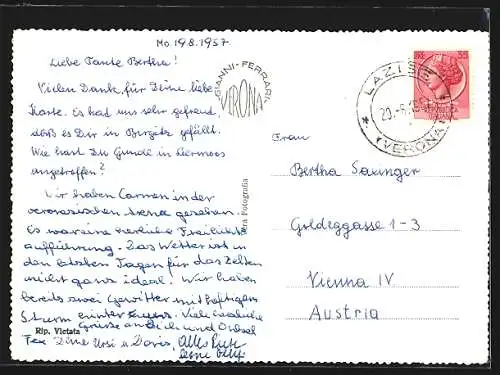 Mo 19.8.1957
Liebe Tante Bertha!
Vielen Dank, für Deine liebe
Karte. Es hat uns sehr gefreut,
daß es Dir in gefällt.
Wie hast Du Gundi in Lermoos
angetroffen?
Wir haben Carmen in der
veronesischen Arena gesehen.
Es war eine herrliche Freilicht-
aufführung. Das Wetter ist in
den letzten Tagen für das Zelten
nicht ganz ideal. Wir haben
bereits zwei Gewitter mit heftigem
Sturm hinter uns. Viele herzliche
Grüsse an Dich und Onkel
Deine Ursi u Doris, Alles Gute
Deine
Rip. Vietata
GIANNI-FERRARI
VERONA
Vera Fotografia
LAZISE
(VERONA)
Frau
Bertha Saxinger
Goldeggasse 1-3
Vienna IV
Austria